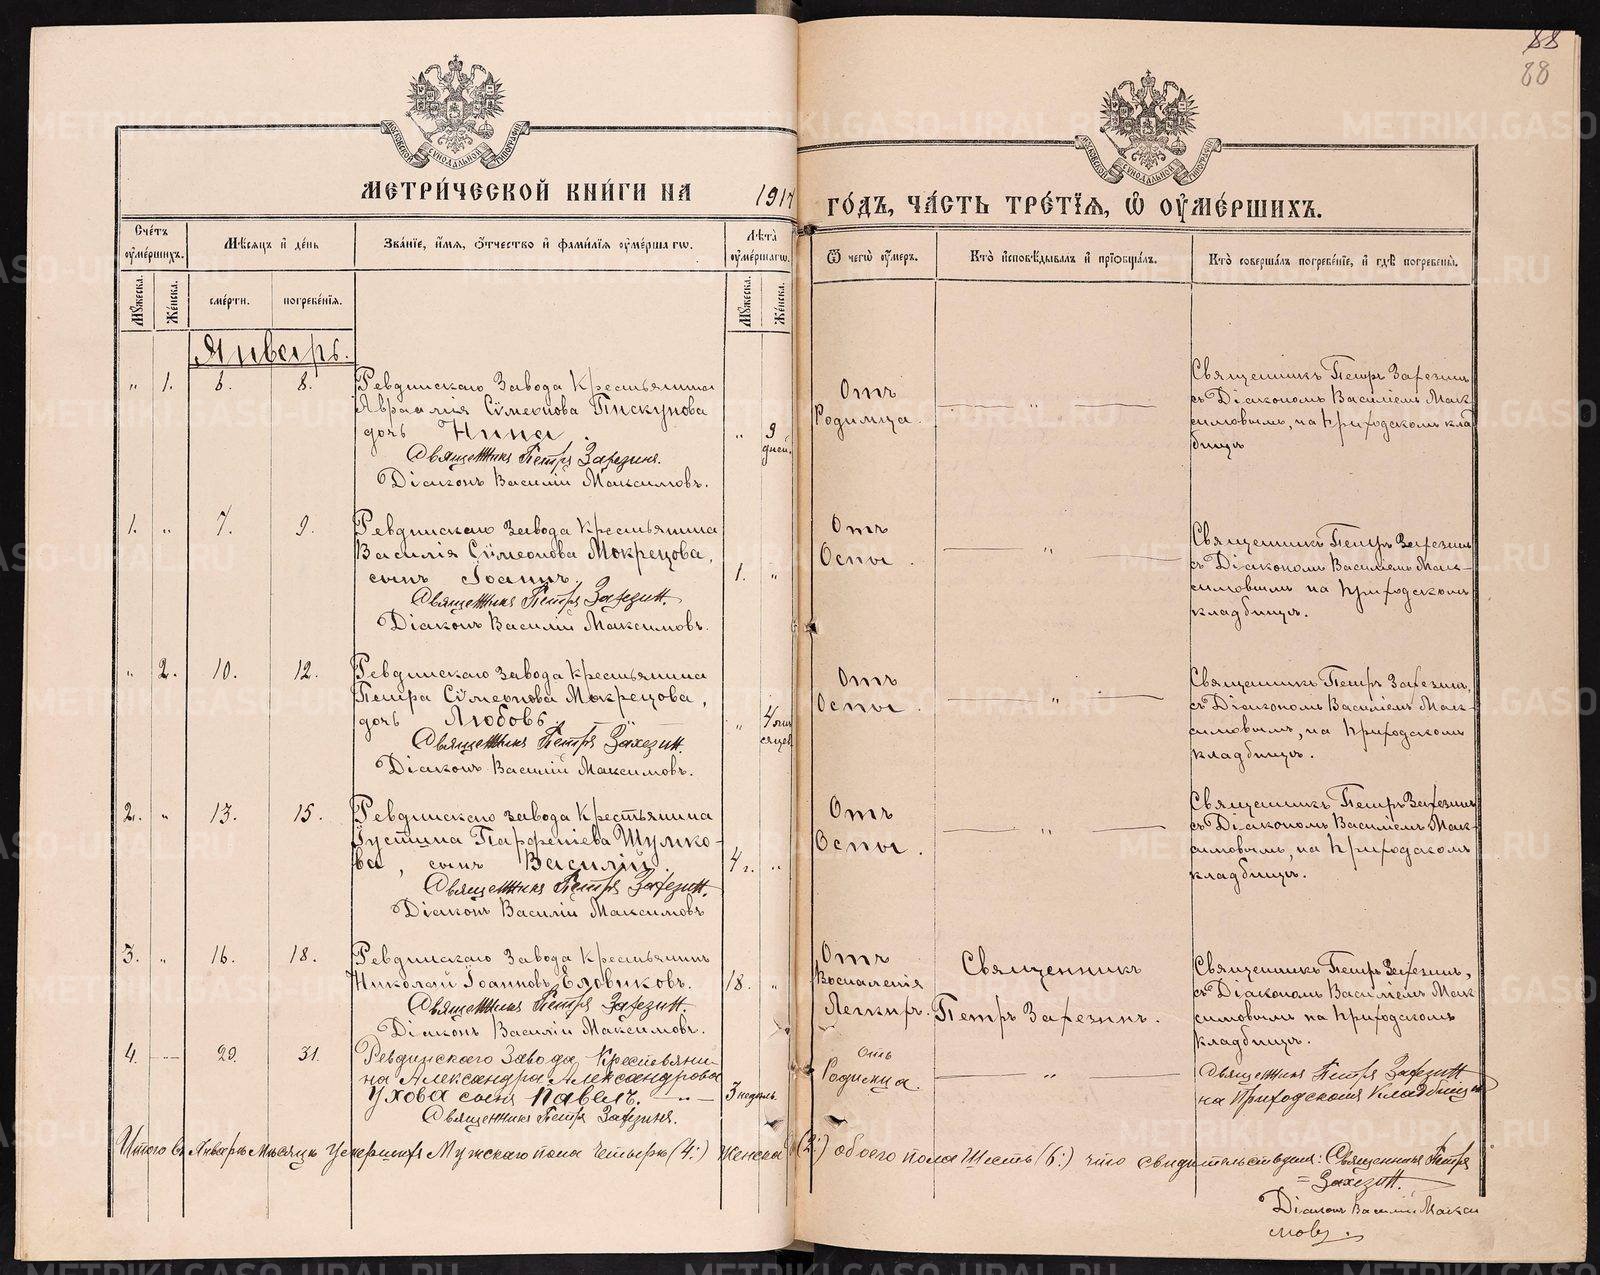 88
88
МЕТРИ́ЧЕСКОЙ КНИ́ГИ НА 1914 ГО́ДЪ, ЧА́СТЬ ТРЕ́ТІЯ, Ѡ ОУМЕ́РШИХЪ.
МОСКОВСКОЙ СѴНОДАЛЬНОЙ ТИПОГРАФІИ
МОСКОВСКОЙ СѴНОДАЛЬНОЙ ТИПОГРАФІИ
Сче́тъ оуме́ршихъ.
Мѣ́сяцъ и де́нь
Зва́ніе, и́мя, о́тчество и фами́лія оуме́ршагѡ.
Лѣ́та оуме́ршагѡ.
Ѿ чегѡ̀ оу́меръ.
Кто̀ исповѣ́дывалъ и пріѡбща́лъ.
Кто̀ соверша́лъ погребе́ніе, и гдѣ̀ погребены̀.
Мꙋ́жеска.
Же́нска.
сме́рти.
погребе́нія.
Мꙋ́жеска.
Же́нска.
Январь.
„ 1. 6. 8.
Ревдинскаго Завода Крестьянина
Авраамія Сѵмеонова Пискунова
дочь Нина.
Священникъ Петръ Захезинъ.
Діаконъ Василій Максимовъ.
„ 9 дней.
Отъ
Родимца.
„
Священникъ Петръ Захезинъ
съ Діакономъ Василіемъ Мак-
симовымъ, на Приходскомъ клад
бищѣ
1. „ 7. 9.
Ревдинскаго Завода Крестьянина
Василія Сѵмеонова Мокрецова,
сынъ Іоаннъ.
Священникъ Петръ Захезинъ.
Діаконъ Василій Максимовъ.
1. „
Отъ
Оспы.
„
Священникъ Петръ Захезинъ
съ Діакономъ Василіемъ Мак-
симовымъ на Приходскомъ
кладбищѣ.
„ 2. 10. 12.
Ревдинскаго Завода Крестьянина
Петра Сѵмеонова Мокрецова,
дочь Любовь.
Священникъ Петръ Захезинъ.
Діаконъ Василій Максимовъ.
„ 4 мѣ
сяцев
Отъ
Оспы.
„
Священникъ Петръ Захезинъ,
съ Діакономъ Василіемъ Мак-
симовымъ, на Приходскомъ
кладбищѣ.
2. „ 13. 15.
Ревдинскаго завода Крестьянина
Іустина Парфеніева Шумко-
ва, сынъ Василій.
Священникъ Петръ Захезинъ.
Діаконъ Василій Максимовъ
4 г. „
Отъ
Оспы.
„
Священникъ Петръ Захезинъ
съ Діакономъ Василіемъ Мак-
симовымъ, на Приходскомъ
кладбищѣ.
3. „ 16. 18.
Ревдинскаго Завода Крестьянинъ
Николай Іоанновъ Еловиковъ.
Священникъ Петръ Захезинъ.
Діаконъ Василій Максимовъ.
18. „
Отъ
Воспаленія
Легкихъ.
Священникъ
Петръ Захезинъ.
Священникъ Петръ Захезинъ,
съ Діакономъ Василіемъ Мак
симовымъ на Приходскомъ
кладбищѣ.
4. 29. 31.
Ревдинскаго Завода, Крестьяни-
на Александра Александрова
Ухова сынъ Павелъ.
Священникъ Петръ Захезинъ.
3 недѣль.
отъ
Родимца.
„
Священникъ Петръ Захезинъ
на Приходскомъ Кладбищѣ
Итого въ Январѣ Мѣсяцѣ Умершихъ Мужскаго пола четыре (4:) женска (2:) обоего пола Шесть (6:) что свидѣтельствуемъ: Священникъ Петръ
= Захезинъ.
Діаконъ Василій Макси
мовъ.